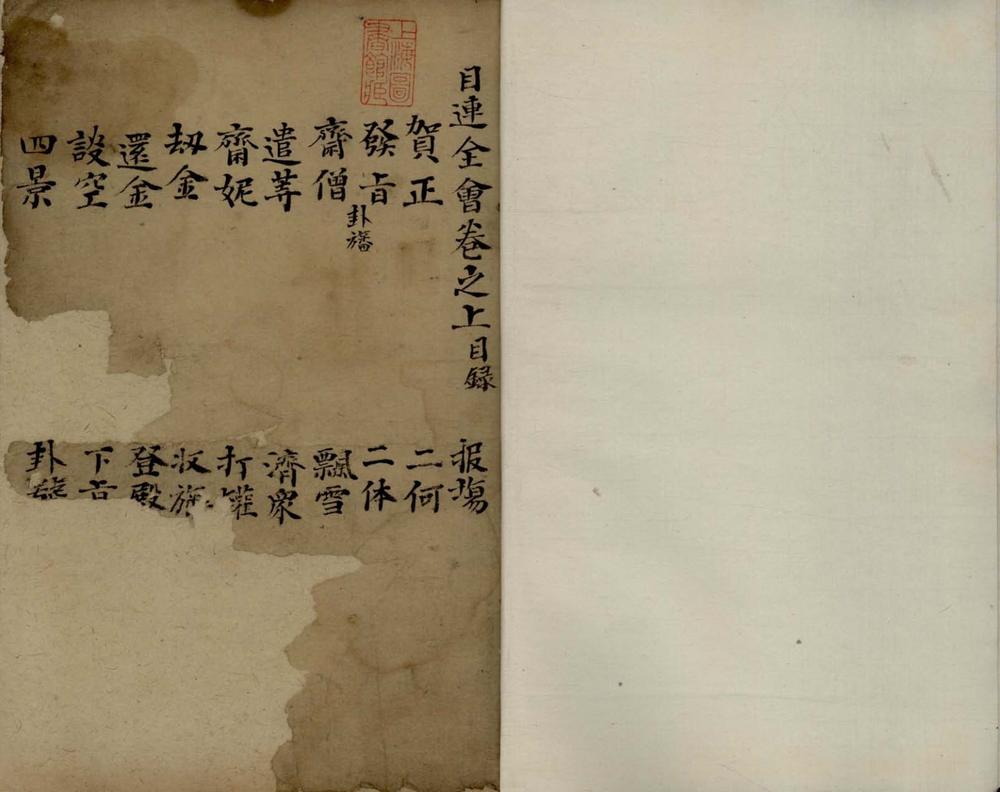 目連全會卷之上目録
報塲
賀正
二何
發旨
二体
齋僧
卦旛
飄雪
遣等
濟衆
齋妮
打罐
刼金
收旛
還金
登殿
設空
下旨
四景
卦
上海圖書館藏